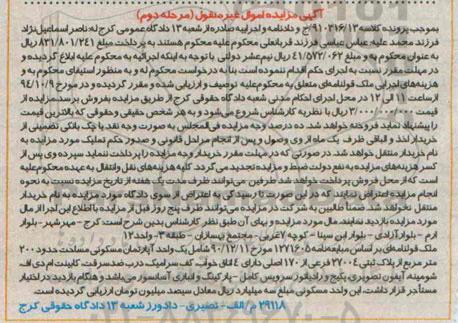 آگهی مزایده اموال غیر منقول (مرحله دوم)
بموجب پرونده کلاسه ۹۱۰۳۱۶/۱۳ج و دادنامه و اجرائیه صادره از شعبه ۱۳ دادگاه عمومی کرج له ناصر اسماعیل نژاد
فرزند محمد علیه عباس عباسی فرزند قربانعلی محکوم علیه محکوم هستند به پرداخت مبلغ ۸۳۱/۸۰۱/۲۴۱ ریال
به عنوان محکوم به و مبلغ ۴۱/۵۷۲/۰۶۲ ریال نیم عشر دولتی با توجه به اینکه اجرائیه به محکوم علیه ابلاغ گردیده و
در مهلت مقرر نسبت به اجرای حکم اقدام ننموده است بنا به درخواست محکوم له و به منظور استیفای محکوم به و
هزینه‌های اجرایی ملک قولنامه‌ای متعلق به محکوم علیه توصیف و ارزیابی شده و مقرر گردیده و در مورخ ۹۴/۱۰/۹
از ساعت ۱۱ الی ۱۲ در محل اجرای احکام مدنی شعبه دادگاه حقوقی کرج از طریق مزایده بفروش برسد. مزایده از
قیمت ۳/۰۰۰/۰۰۰/۰۰۰ ریال با نظریه کارشناس شروع می‌شود و به هر شخص حقیقی و حقوقی که بالاترین قیمت
را پیشنهاد نماید فروخته خواهد شد. ده درصد وجه مزایده فی المجلس به صورت وجه نقد یا چک بانکی تضمینی از
خریدار اخذ و الباقی ظرف یک ماه از وی وصول و پس از انجام مراحل قانونی و صدور حکم تملیک مورد مزایده به
نام خریدار منتقل خواهد شد. در صورتی که در مهلت مقرر خریدار وجه مزایده را پرداخت ننماید سپرده وی پس از
کسر هزینه‌های مزایده به نفع دولت ضبط و مزایده تجدید می‌گردد کلیه هزینه‌های نقل وانتقال به عهده محکوم علیه
است که از محل فروش پرداخت خواهد شد طرفین می‌توانند ظرف مدت یک هفته از تاریخ مزایده نسبت به نحوه
انجام مزایده اعتراض نمایند که در این صورت تا رسیدگی به اعتراض از سوی دادگاه مورد مزایده به نام خریدار
منتقل نخواهد شد. ضمناً طالبین به شرکت در مزایده می‌توانند ظرف پنج روز قبل از مزایده با اطلاع این اجرا از مال
مورد مزایده بازدید نمایند. مال مورد مزایده و بهای آن طبق نظر کارشناس بدین شرح است: کرج - مهرشهر - بلوار
ارم - بلوار آزادی - بلوار ابن سینا - کوچه ۷ غربی - مجتمع نیساران - طبقه ۳- واحد ۱۲
ملک قولنامه‌ای بر اساس مبایعه نامه ۱۲۷۱۶۰۵ مورخ ۹۰/۱۲/۱۱ شامل یک واحد آپارتمان مسکونی مساحت حدود ۲۰۰
متر مربع از پلاک ثبتی ۲۷۰۰۴ فرعی از ۱۷۰ اصلی دارای ۴ اتاق خواب کف سرامیک درب ضد سرقت کابینت ام دی اف
شومینه آیفون تصویری پکیج و رادیاتور سرویس کامل - پارکینگ و انباری آسانسور می‌باشد و هنگام بازدید در اختیار
مستأجر قرار داشت، این واحد مسکونی مبلغ سه میلیارد ریال معادل سیصد میلیون تومان ارزیابی گردیده است.
۲۹۱۱۸ م الف - نصیری - دادورز شعبه ۱۳ دادگاه حقوقی کرج